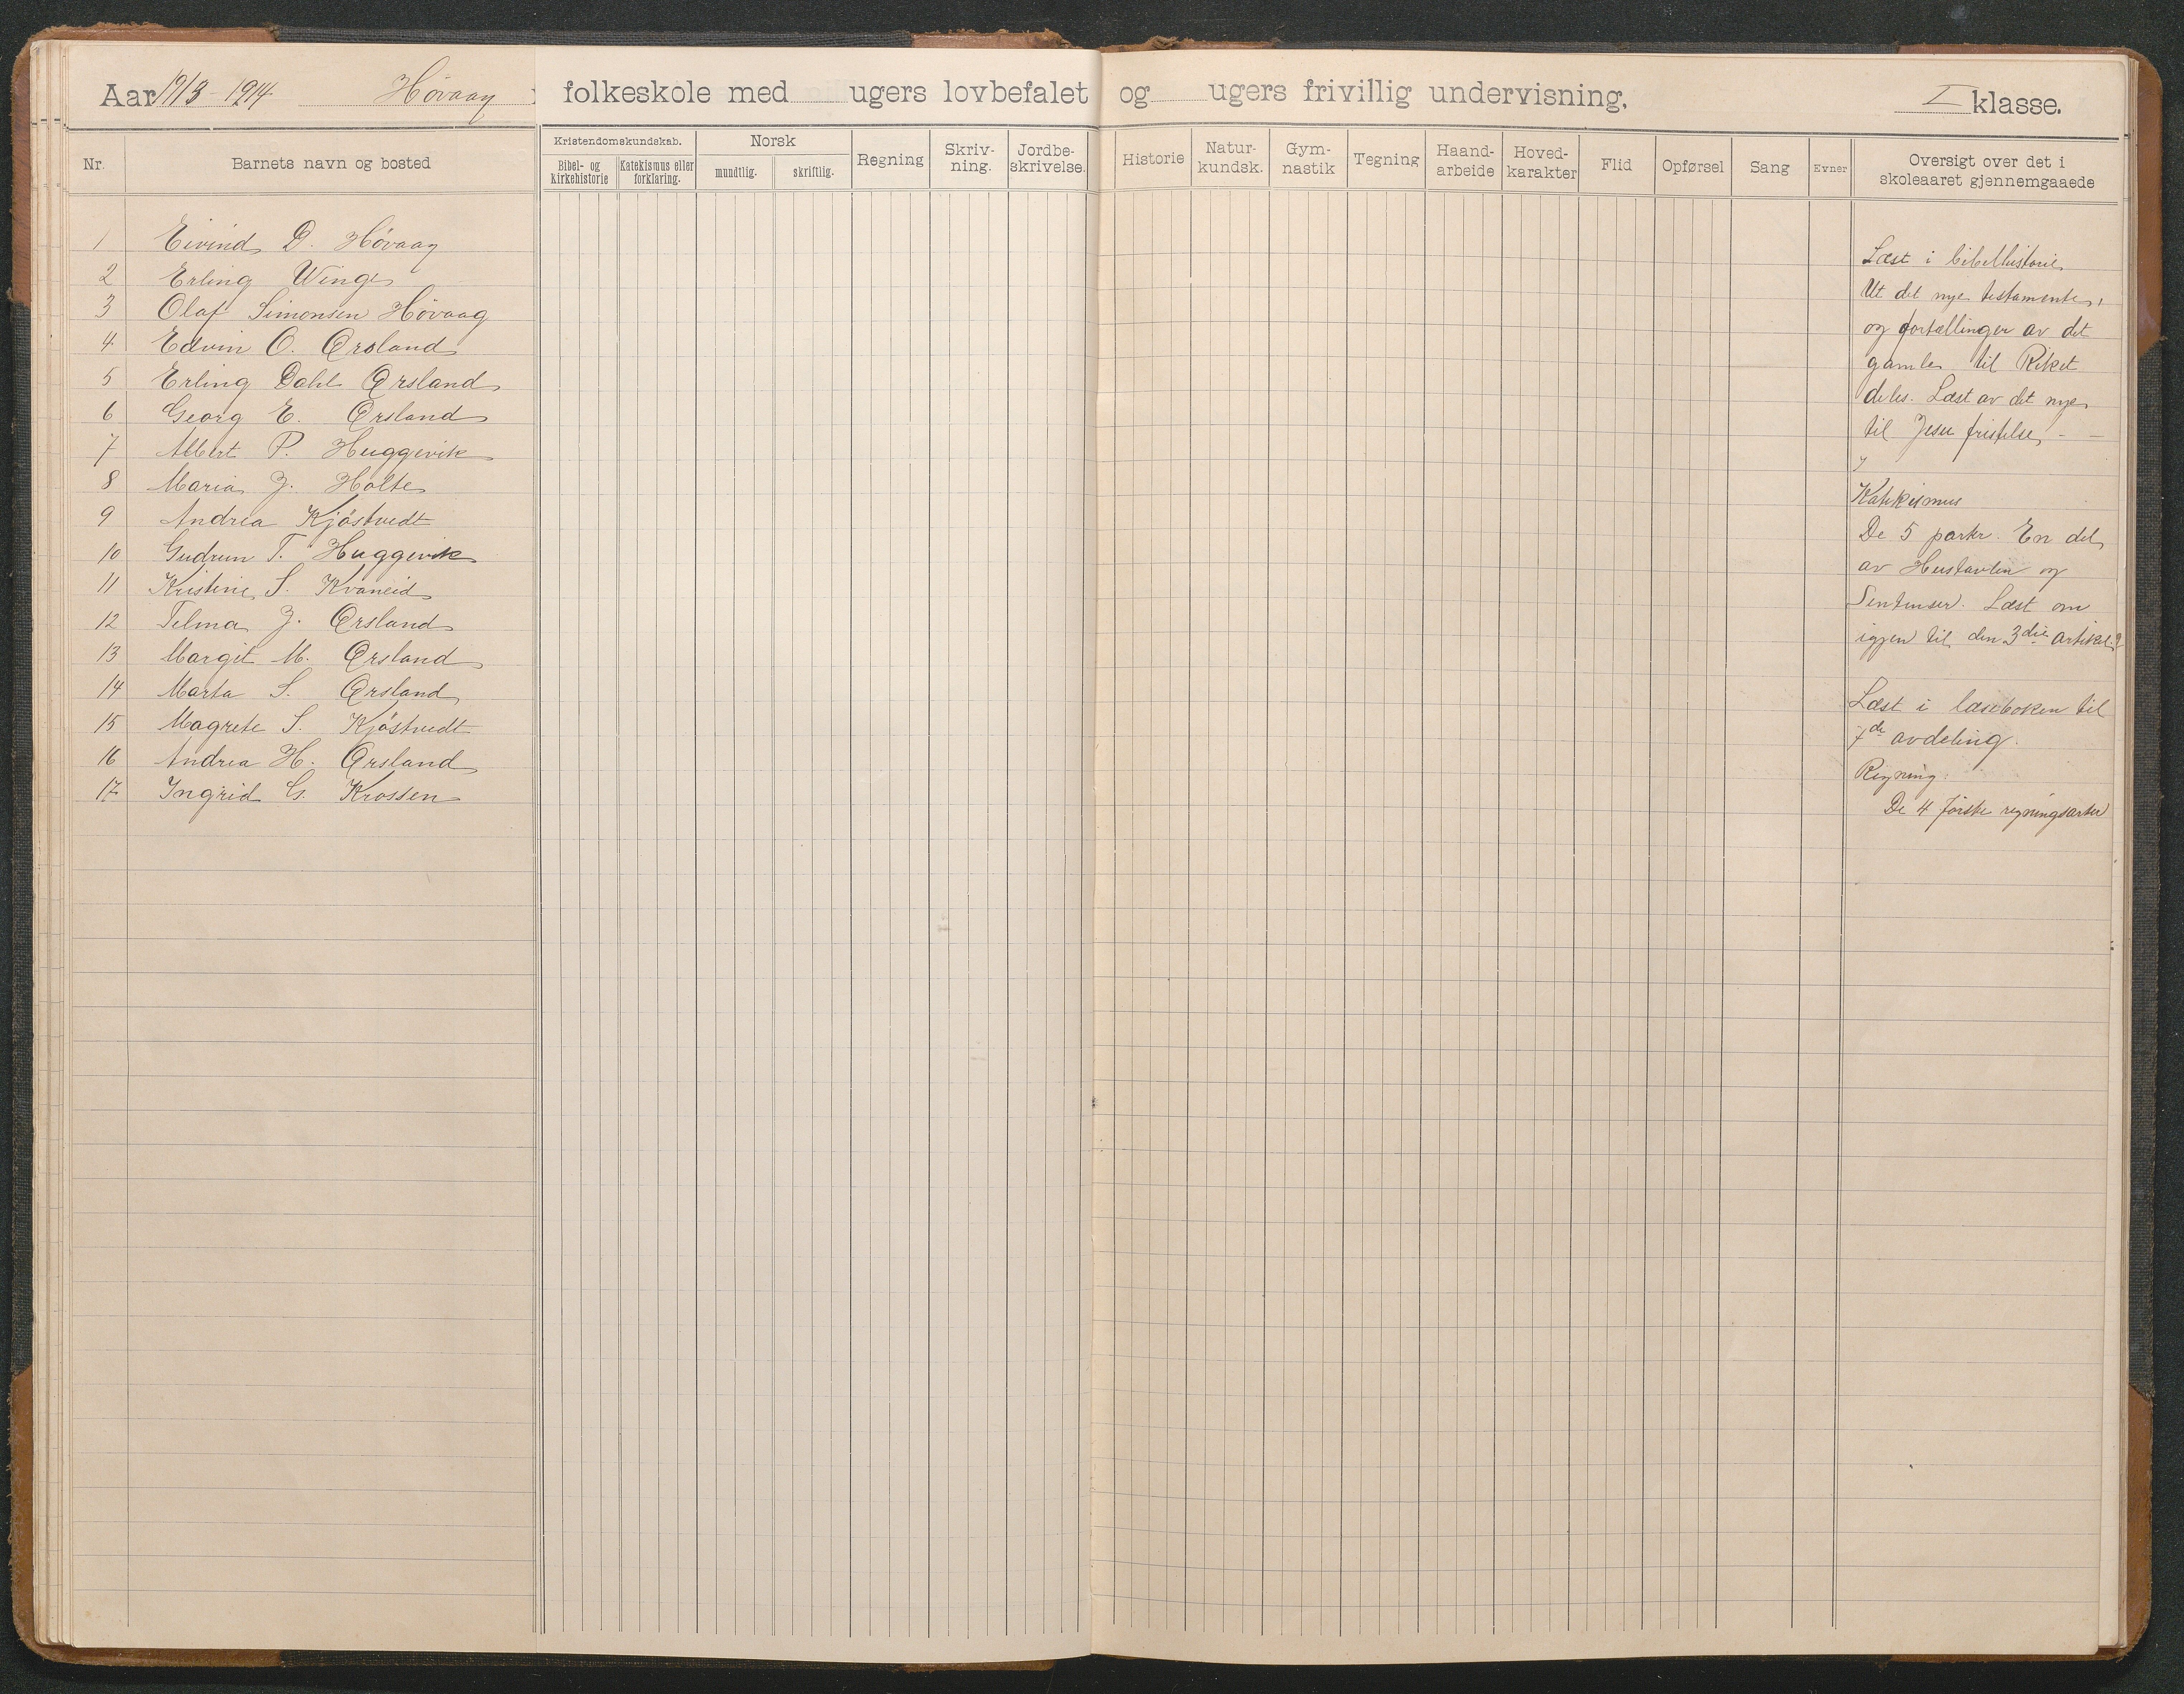 Aar 1913-1914 Høvaag folkeskole med ugers lovbefalet og ugers frivillig undervisning. I klasse.
Nr. Barnets navn og bosted Kristendomskundskab. Bibel- og kirkehistorie Katekismus eller forklaring. Norsk mundtlig. skriftlig. Regning Skriv-ning. Jordbe-skrivelse. Historie Natur-kundsk. Gym-nastik Tegning Haand-arbeide Hoved-karakter Flid Opførsel Sang Evner Oversigt over det i skoleaaret gjennemgaaede
1 Eivind D. Høvaag
2 Erling Winge
3 Olaf Simonsen Høvaag
4 Edvin O. Ørsland
5 Erling Dahl Ørsland
6 Georg E. Ørsland
7 Albert P. Huggevik
8 Maria J. Holte
9 Andrea Kjöstvedt
10 Gudrun T. Huggevik
11 Kristine S. Kvaneid
12 Telma J. Ørsland
13 Margit M. Ørsland
14 Marta S. Ørsland
15 Magrete S. Kjöstvedt
16 Andrea H. Ørsland
17 Ingrid G. Krossen
Læst i bibelhistorie
Ut det nye testamente,
og fortællinger av det
gamle til Riket
deles. Læst av det nye
til Jesu fristelse, - -
Katekismus
De 5 parter. En del
av Hustavlen og
Sentenser. Læst om
igjen til den 3die artikel.
Læst i læseboken til
7de avdeling.
Regning.
De 4 første regningsarter